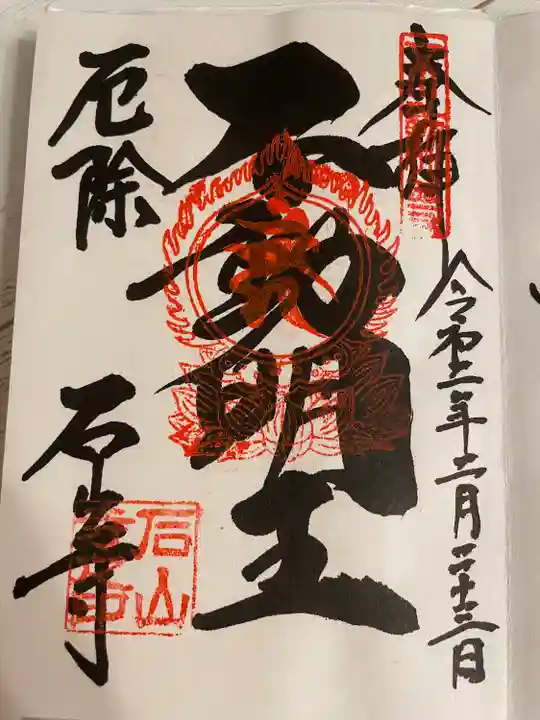 奉拝
令和二年二月二十三日
不動明王
厄除
石山寺
石山